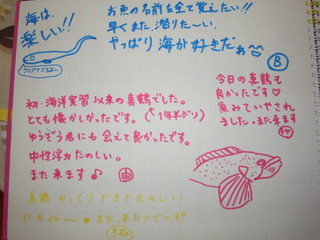 海は、
楽しい!!
お魚の名前を全て覚えたい!!
早くまた、潜りた〜い。
やっぱり海が好きだぁ
B
今日の真鶴も
良かったです♡
魚みていやされ
ました。また来ます
初・海洋実習以来の真鶴でした。
とても懐かしかったです。(1年半ぶり)
ゆうぞう君にも会えて良かったです。
中性浮力たのしい。
また来ます♪ 由
真鶴 ゆっくり
たのしい
また